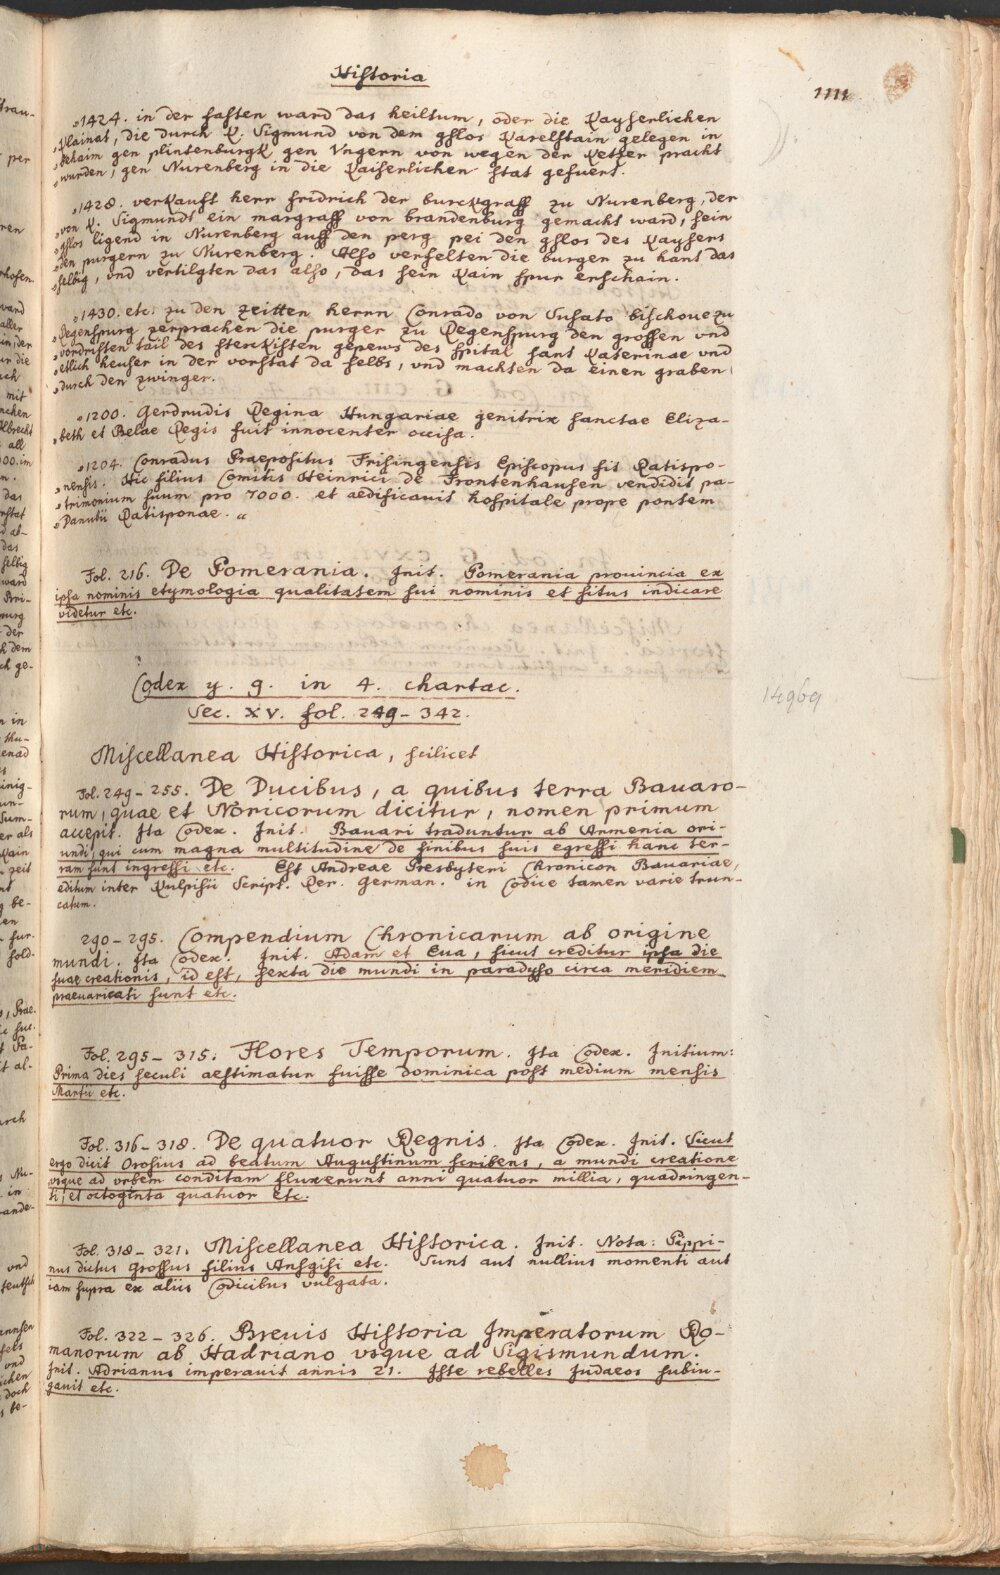 Historia
1111.
„1424. in der fasten ward das heiltum, oder die Kayserlichen
„Klainat, die durch K. Sigmund von dem gslos Karelstain gelegen in
„Behaim gen plintenburgk gen Vngern von wegen der Ketzer pracht
„wurden, gen Nurenberg in die Kaiserlichen stat gefuert.
„1428. verkauft herr fridrich der burckgraff zu Nurenberg, der
„von K. Sigmundt ein margraff von brandenburg gemacht ward, sein
„gslos ligend in Nurenberg auff den perg pei den gslos des Kaysers
„den purgern zu Nurenberg. Also verselten die burger zu hant das
„selbig, vnd vertilgten das also, das sein kain spur erschain.
„1430. etc. zu den zeitten herrn Conrado von Susato bischoue zu
„Regenspurg zerprachen die purger zu Regenspurg den grossen vnd
„vordristen tail des sterckisten gepews des spital sant Katerinae vnd
„etlich heuser in der vorstat da selbs, vnd machten da einen graben
„durch den zwinger.
„1200. Gerdrudis Regina Hungariae genitrix sanctae Eliza-
„beth et Belae Regis fuit innocenter occisa.
„1204. Conradus Praepositus Frisingensis Episcopus fit Ratispo-
„nensis. Hic filius Comitis Heinrici de Frontenhausen vendidit pa-
„trimonium suum pro 7000. et aedificauit hospitale prope pontem
„Danutii Ratisponae. „
Fol. 216. De Pomerania. Init. Pomerania prouincia ex
ipsa nominis etymologia qualitatem sui nominis et situs indicare
videtur etc.
Codex y. 9. in 4. chartac.
Sec. XV. fol. 249-342.
14969
Miscellanea Historica, scilicet
Fol. 249-255. De Ducibus, a quibus terra Bauaro-
rum, quae et Noricorum dicitur, nomen primum
accepit. Ita Codex. Init. Bauari traduntur ab Armenia ori-
undi, qui cum magna multitudine de finibus suis egressi hanc ter-
ram sunt ingressi etc. Est Andreae Presbyteri Chronicon Bauariae,
editum inter Kulpisii Script. Rer. German. in Codice tamen varie trun-
catum.
290-295. Compendium Chronicarum ab origine
mundi. Ita Codex. Init. Adam et Eua, sicut creditur ipsa die
suae creationis, id est, sexta die mundi in paradyso circa meridiem
praeuaricati sunt etc.
Fol. 295-315. Flores Temporum. Ita Codex. Initium:
Prima dies seculi aestimatur fuisse dominica post medium mensis
Martii etc.
Fol. 316-318. De quatuor Regnis. Ita Codex. Init. Sicut
ergo dicit Orosius ad beatum Augustinum scribens, a mundi creatione
vsque ad vrbem conditam fluxerunt anni quatuor millia, quadringen-
ti, et octoginta quatuor etc.
Fol. 318-321. Miscellanea Historica. Init. Nota: Pippi-
nus dictus Grossus filius Ansgisi etc. Sunt aut nullius momenti aut
iam supra ex aliis Codicibus vulgata.
Fol. 322-326. Breuis Historia Imperatorum Ro-
manorum ab Hadriano vsque ad Sigismundum.
Init. Adrianus imperauit annis 21. Iste rebelles Iudaeos subiu-
gauit etc.